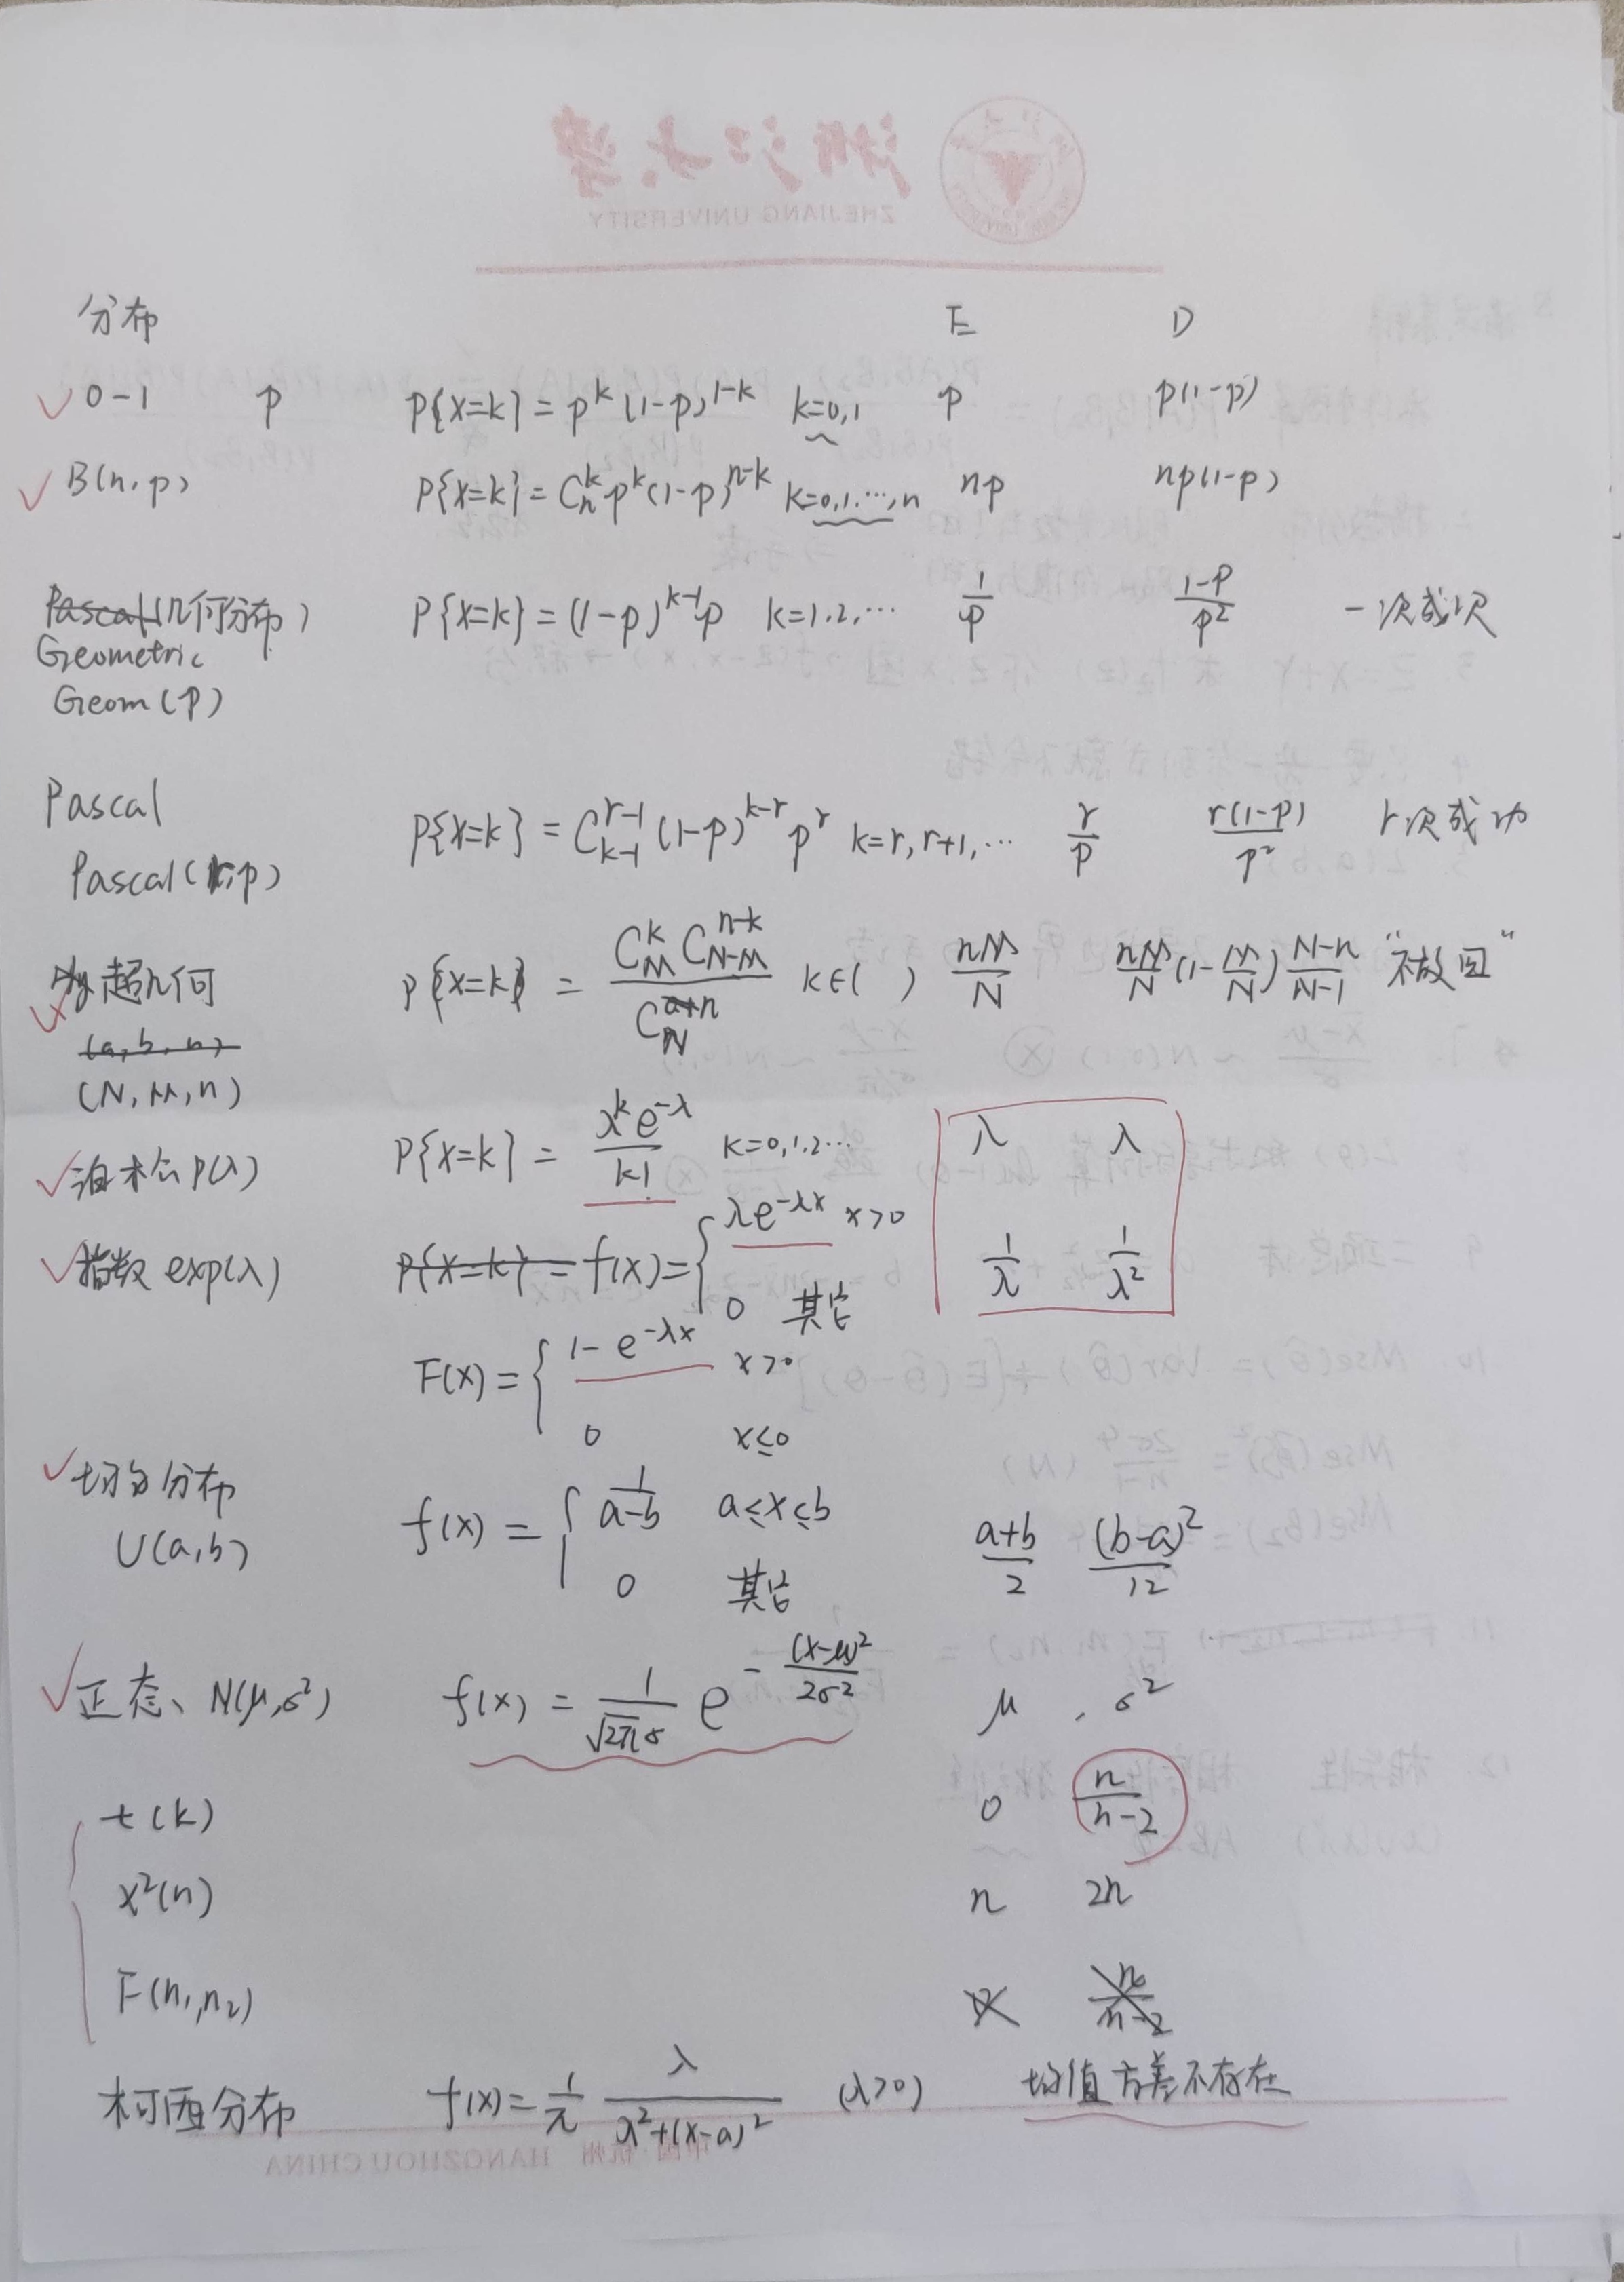 浙江大学
ZHEJIANG UNIVERSITY
分布 E D
0-1 p P{X=k}=p^k(1-p)^{1-k} k=0,1 p p(1-p)
B(n,p) P{X=k}=C_n^k p^k(1-p)^{n-k} k=0,1,…,n np np(1-p)
Pascal(几何分布) P{X=k}=(1-p)^{k-1}p k=1,2,… 1/p (1-p)/p^2 一次成
Geometric
Geom(p)
Pascal P{X=k}=C_{k-1}^{r-1}(1-p)^{k-r}p^r k=r,r+1,… r/p r(1-p)/p^2 r次成功
Pascal(r,p)
超几何 P{X=k}=C_M^k C_{N-M}^{n-k}/C_N^n k∈( ) nM/N nM/N(1-M/N)(N-n)/(N-1) "不放回"
(a,b,n)
(N,M,n)
泊松P(λ) P{X=k}=λ^k e^{-λ}/k! k=0,1,2… λ λ
指数exp(λ) P{X=k}= f(x)={λe^{-λx} x>0 1/λ 1/λ^2
0 其它
F(x)={1-e^{-λx} x>0
0 x≤0
均匀分布
U(a,b) f(x)={1/(a-b) a≤x≤b (a+b)/2 (b-a)^2/12
0 其它
正态、N(μ,σ²) f(x)=1/(√2π σ) e^{-(x-μ)^2/2σ^2} μ , σ²
t(k) 0 n/(n-2)
χ²(n) n 2n
F(n₁,n₂) n/(n-2)
柯西分布 f(x)=1/π λ/(λ²+(x-a)²) (λ>0) 均值方差不存在
中国 杭州 HANGZHOU CHINA